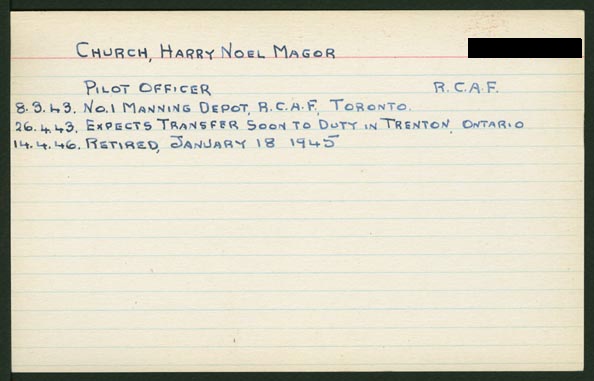 CHURCH, HARRY NOEL MAGOR
PILOT OFFICER R.C.A.F.
8.3.43. NO.1 MANNING DEPOT, R.C.A.F., TORONTO.
26.4.43. EXPECTS TRANSFER SOON TO DUTY IN TRENTON, ONTARIO
14.4.46. RETIRED, JANUARY 18 1945